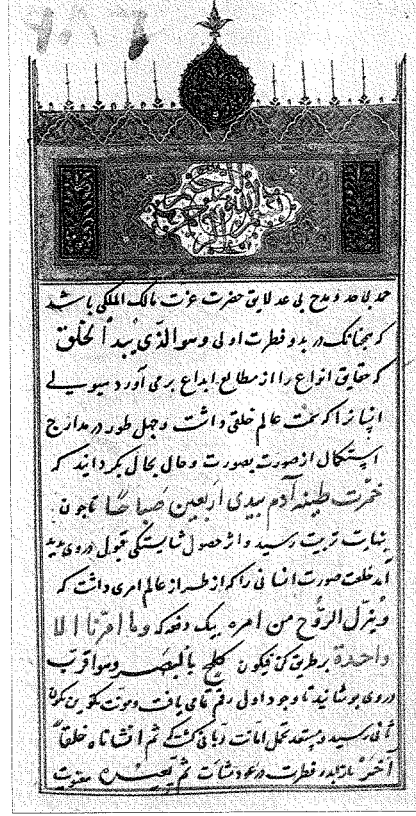 بسم الله الرحمن الرحیم
حمد بی حد و مدح بی عد لایق حضرت عزت مالک الملکی باشد
که همچنانک در بدو فطرت اولی وهو الذی یبدأ الخلق
که حقایق انواع را از مطالع ابداع برمی آورد هیولی
انسانرا که سمت عالم خلقی داشت چهل طور در مدارج
استکمال از صورت بصورت و حال بحال بگردانید که
خمرت طینة آدم بیدی اربعین صباحا تا چون
بنهایت تربیت رسید و اثر حصول شایستگی قبول در وی پدید
آمد خلعت صورت انسانی را که از طراز عالم امری داشت که
وینزل الرّوح من امره بیک دفعه که وما امرنا الا
واحدة بر طریق کن فیکون کلمح بالبصر وهو اقرب
در وی پوشانید تا وجود اول رقم تمامی یافت و نوبت تکوین کون
ثانی رسید و مستعد تحمل امانت ربانی گشت که ثم انشأناه خلقاً
آخر فطرت در عود نشأت ثم یعیده